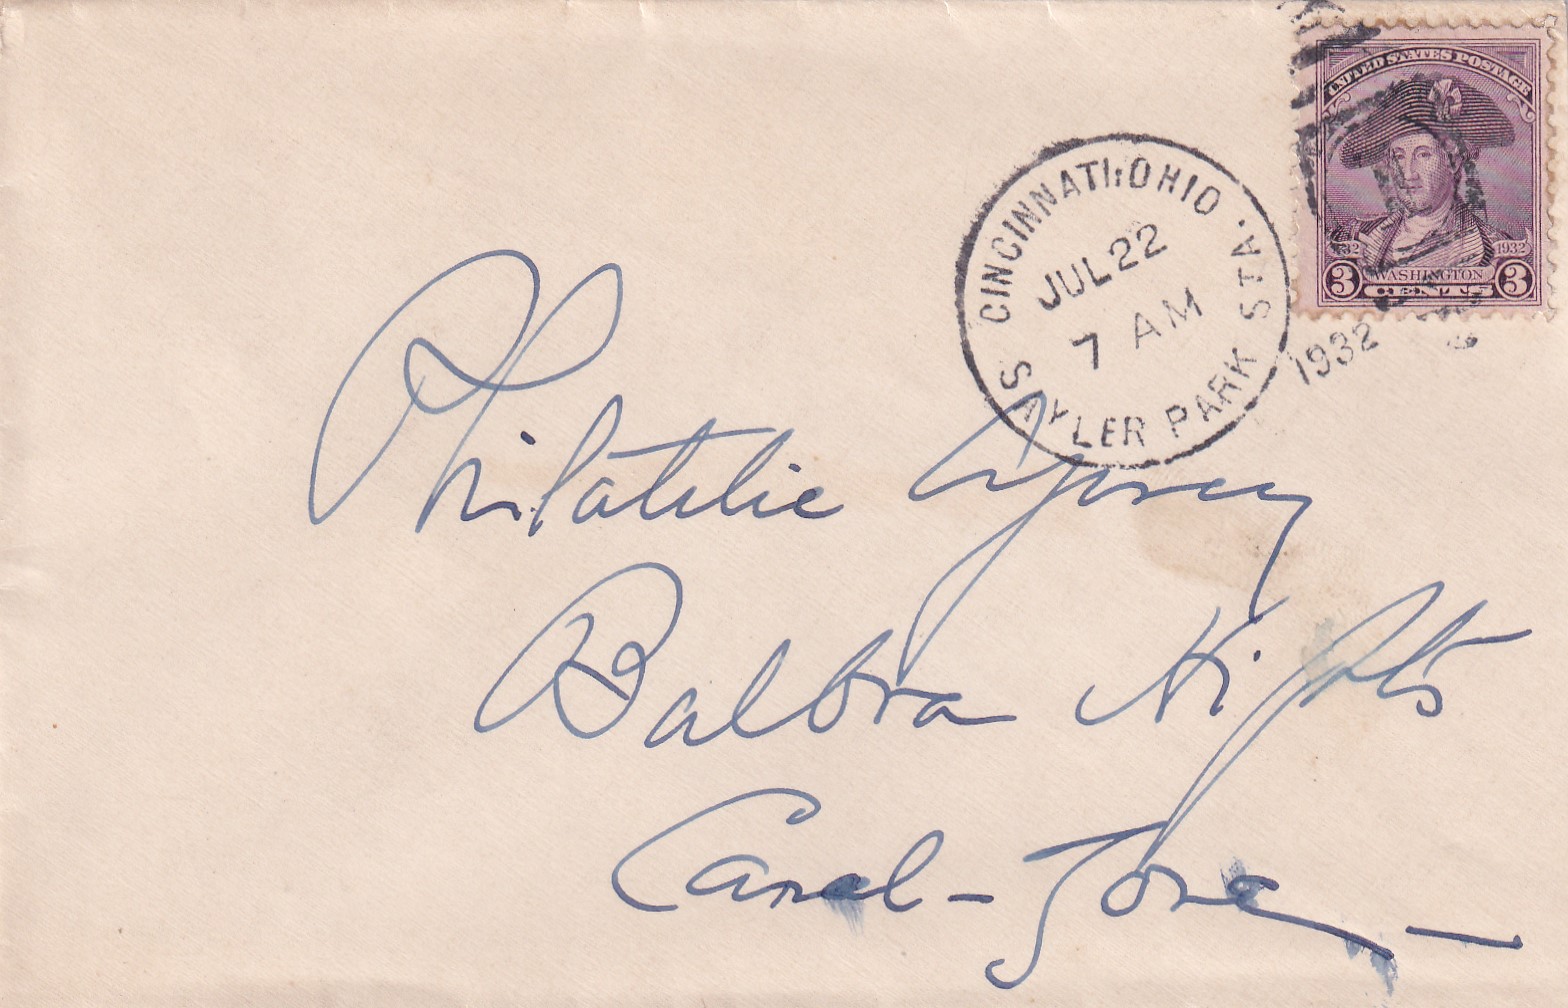 UNITED STATES POSTAGE
1932 1932
3 WASHINGTON 3
CENTS
CINCINNATI, OHIO
JUL 22
7 AM
1932
SAYLER PARK STA.
Philatelic Agency
Balbra Hights
Canal-Zone-